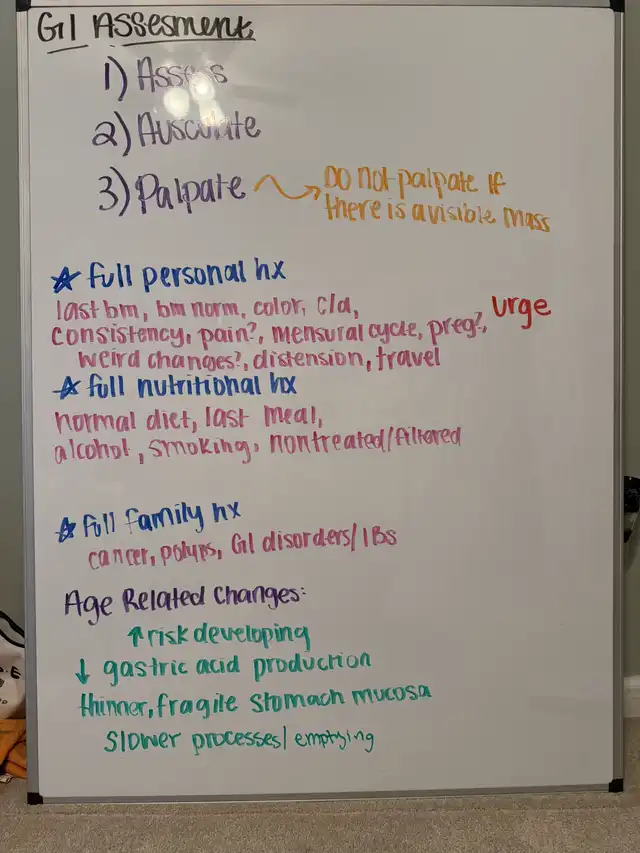 GI ASSESMENT
1) Assess
2) Ausculate
3) Palpate
DO not palpate if
there is a visible mass
full personal hx
last bm, bm norm, color, c/d,
urge
consistency, pain?, mensural cycle, preg?,
weird changes?, distension, travel
full nutritional hx
normal diet, last meal,
alcohol, smoking, nontreated/filtered
full family hx
cancer, polyps, GI disorders/IBS
Age Related Changes:
↑ risk developing
↓ gastric acid production
thinner, fragile stomach mucosa
slower processes/emptying